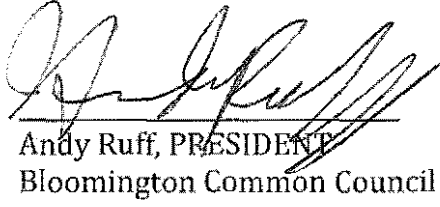 Andy Ruff, PRESIDENT
Bloomington Common Council